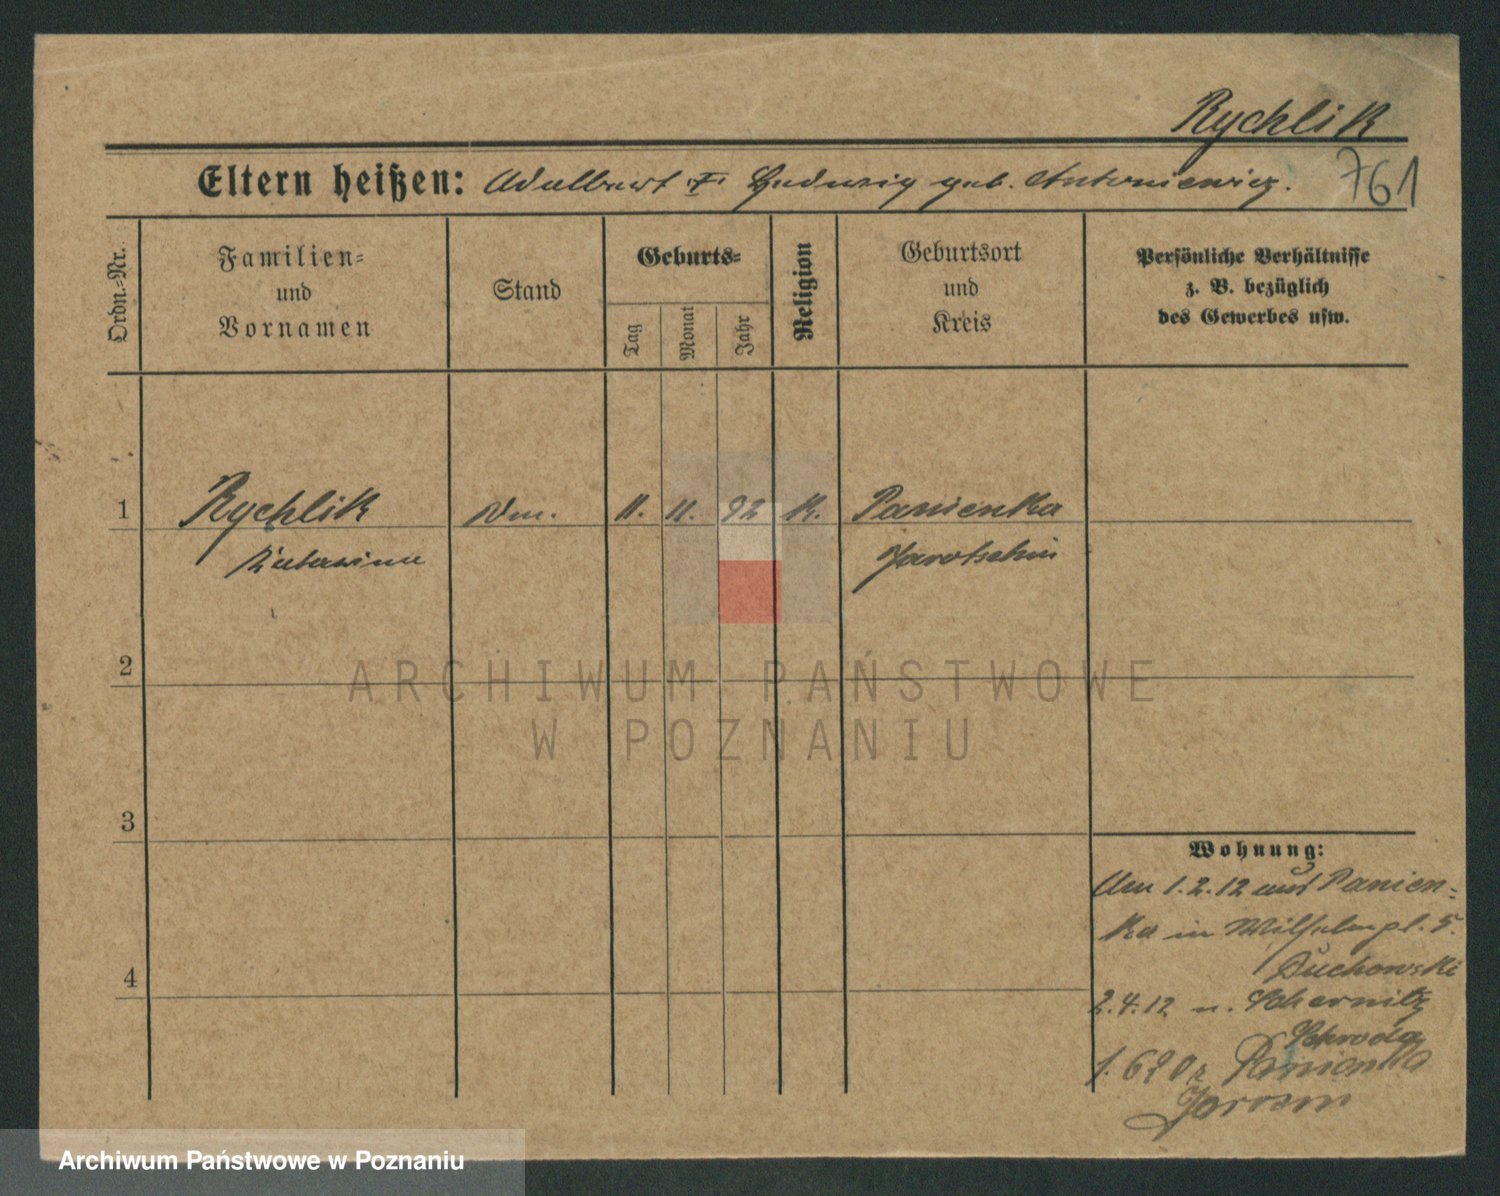 Rychlik
Eltern heißen: Adalbert u. Hedwig geb. Antoniewicz. 761
Ordn.=Nr.
Familien=
und
Vornamen
Stand
Geburts=
Tag
Monat
Jahr
Religion
Geburtsort
und
Kreis
Persönliche Verhältnisse
z. B. bezüglich
des Gewerbes usw.
1 Rychlik 11. 11. 92 K. Panienka
Katarina Jarotschin
2
ARCHIWUM PAŃSTWOWE
W POZNANIU
3
Wohnung:
Am 1.2.12 aus Panien=
ka in Wilhelmpl. 5.
Suchowski
4
2.4.12 n.
Schroda
Panienka
Archiwum Państwowe w Poznaniu